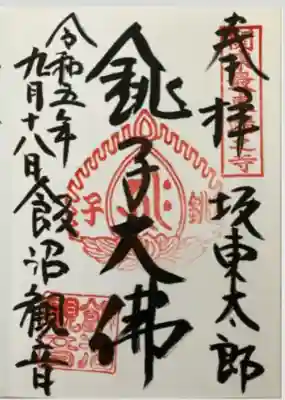 奉拝 坂東太郎
銚子大佛
令和五年
九月十八日 飯沼観音
銚子
飯沼観音